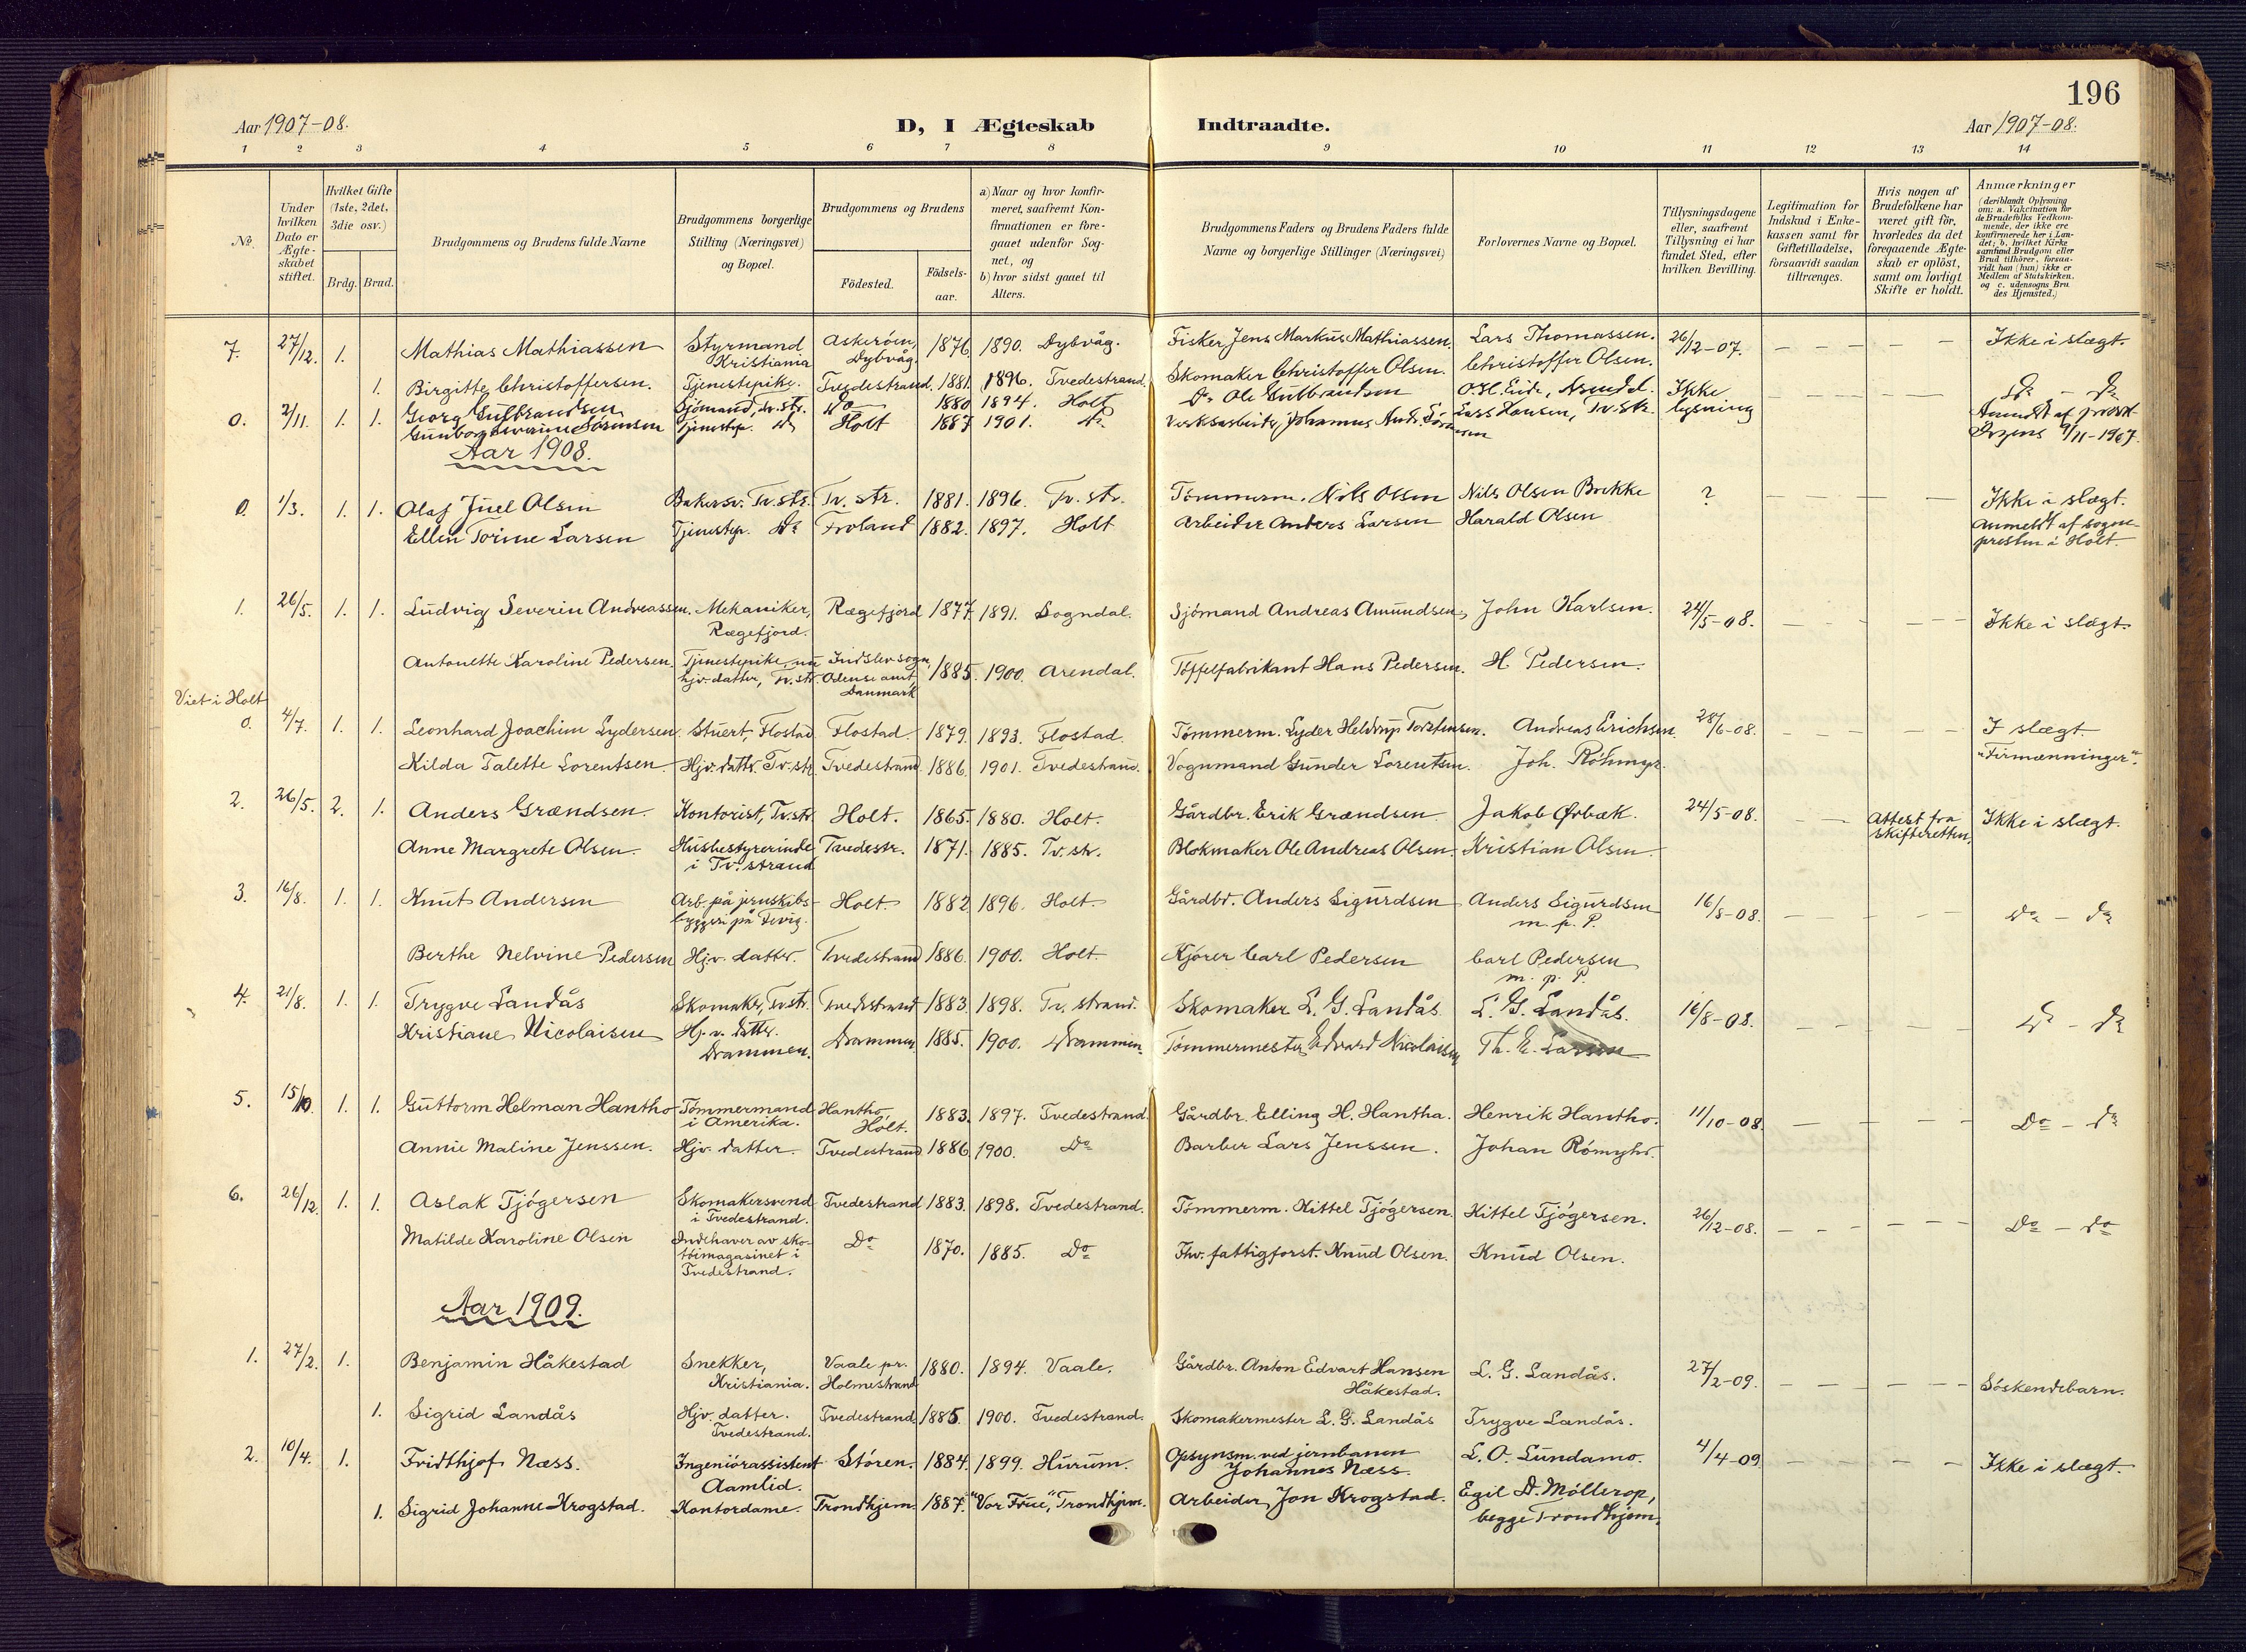 196
Aar 1907-08. D, I Ægteskab Indtraadte. Aar 1907-08.
1 2 3 4 5 6 7 8 9 10 11 12 13 14
No.
Under hvilken Dato er Ægteskabet stiftet.
Hvilket Gifte (1ste, 2det, 3die osv.)
Brdg. Brud.
Brudgommens og Brudens fulde Navne
Brudgommens borgerlige Stilling (Næringsvei) og Bopæl.
Brudgommens og Brudens
Födested. Födsels-aar.
a) Naar og hvor konfirmeret, saafremt Konfirmationen er foregaaet udenfor Sognet, og
b) hvor sidst gaaet til Alters.
Brudgommens Faders og Brudens Faders fulde Navne og borgerlige Stillinger (Næringsvei)
Forlovernes Navne og Bopæl.
Tillysningsdagene eller, saafremt Tillysning ei har fundet Sted, efter hvilken Bevilling.
Legitimation for Indskud i Enkekassen samt for Giftetilladelse, forsaavidt saadan tiltrænges.
Hvis nogen af Brudefolkene har været gift för, hvorledes da det foregaaende Ægteskab er oplöst, samt om lovligt Skifte er holdt.
Anmærkninger (deriblandt Oplysning om: a. Vakcination for de Brudefolks Vedkommende, der ikke ere konfirmerede her i Landet; b. hvilket Kirkesamfund Brudgom eller Brud tilhörer, forsaavidt han (hun) ikke er Medlem af Statskirken, og c. udensogns Brudes Hjemsted.)
7. 27/12. 1. Mathias Mathiassen Styrmand Kristiania Askerøen, Dybvåg. 1876 1890. Dybvåg. Fisker Jens Markus Mathiassen. Lars Thomassen. 26/12-07. — — — — Ikke i slægt.
1. Birgitte Christoffersen. Tjenestepike. Tvedestrand. 1881. 1896. Tvedestrand. Skomaker Christoffer Olsen. Christoffer Olsen. Do - Do
0. 2/11. 1. 1. Georg Gulbrandsen Sjömand, Tv.str. Do 1880 1894. Holt Do Ole Gulbrandsen O.H. Eide, Arendal. Ikke
Gunborg Severine Sørensen Tjenestep. Do Holt 1887 1901. Do Verksarbeider Johannes Andr. Sörensen Lars Hansen, Tv. Str. lysning Anmeldt af prost 9/11-1907.
Aar 1908.
0. 1/3. 1. 1. Olaf Juel Olsen Bakersv. Tv. str. Tv. str. 1881. 1896. Tv. str. Tømmerm. Nils Olsen Nils Olsen Brekke ? — — — Ikke i slægt.
Ellen Torine Larsen Tjenestep. Do Froland 1882. 1897. Holt Arbeider Anders Larsen Harald Olsen Anmeldt af sogne-presten i Holt.
1. 26/5. 1. 1. Ludvig Severin Andreassen. Mekaniker, Rægefjord. Rægefjord 1877. 1891. Sogndal. Sjömand Andreas Amundsen, John Karlsen. 24/5-08. — — Ikke i slægt.
Antonette Karoline Pedersen. Tjenestepike, nu hjv. datter, Tv. str. Indslev sogn, Odense amt, Danmark 1885. 1900. Arendal. Töffelfabrikant Hans Pedersen. H. Pedersen.
Viet i Holt
0. 4/7. 1. 1. Leonhard Joachim Lydersen. Stuert, Flostad Flostad. 1879. 1893. Flostad. Tømmerm. Lyder Heldrup Torstensen. Andreas Erichsen. 28/6-08. — — — I slægt.
Hilda Talette Lorentsen Hjv. dattr. Tv. str. Tvedestrand 1886. 1901. Tvedestrand. Vognmand Gunder Lorentsen. Joh. Röhmyr. "Firmænninger".
2. 26/5. 2. 1. Anders Grændsen. Kontorist, Tv. str. Holt. 1865. 1880. Holt. Gårdbr. Erik Grændsen. Jakob Ørbæk. 24/5-08. — — Attest fra skifteretten. Ikke i slægt.
Anne Margrete Olsen. Husbestyrerinde i Tv. strand Tvedestr. 1871. 1885. Tv. str. Blokmaker Ole Andreas Olsen. Kristian Olsen.
3. 16/8. 1. 1. Knut Andersen Arb. på jernskibs-byggeri på Fevig. Holt. 1882 1896. Holt. Gårdbr. Anders Sigurdsen Anders Sigurdsen m. p. P. 16/8-08. — — Do - Do
Berthe Nelvine Pedersen Hjv. datter. Tvedestrand 1886. 1900. Holt. Kjører Carl Pedersen Carl Pedersen m. p. P.
4. 21/8. 1. 1. Trygve Landås Skomaker, Tv. str. Tvedestrand 1883. 1898. Tv. strand. Skomaker L. G. Landås. L. G. Landås. 16/8-08. — — Do - Do
Kristiane Nicolaisen Hjv. datter. Drammen. Drammen. 1885. 1900. Drammen. Tømmermester Edvard Nicolaisen Th. E. Larsen
5. 15/10. 1. 1. Guttorm Helman Hantho Tømmermand i Amerika. Hantho, Holt. 1883. 1897. Tvedestrand. Gårdbr. Elling H. Hantha. Henrik Hantho. 11/10-08. — — Do - Do
Annie Maline Jenssen. Hjv. datter. Tvedestrand 1886 1900. Do Barber Lars Jenssen. Johan Römyhr.
6. 26/12. 1. 1. Aslak Tjögersen Skomakersvend i Tvedestrand. Tvedestrand 1883. 1898. Tvedestrand. Tømmerm. Kittel Tjögersen. Kittel Tjögersen. 26/12-08. — — — Do - Do
Matilde Karoline Olsen Indehaver av sko-töimagasinet i Tvedestrand. Do 1870. 1885. Do Fhv. fattigforst. Knud Olsen. Knud Olsen.
Aar 1909.
1. 27/2. 1. Benjamin Håkestad Snekker, Kristiania. Vaale pr. Holmestrand 1880. 1894. Vaale. Gårdbr. Anton Edvart Hansen Håkestad. L. G. Landås. 27/2-09. — — Söskendebarn.
1. Sigrid Landås Hjv. datter. Tvedestrand. Tvedestrand. 1885. 1900. Tvedestrand. Skomakermester L. G. Landås Trygve Landås.
2. 10/4. 1. Fridthjof Næss. Ingeniörassistent Aamlid. Stören. 1884. 1899. Hurum. Opsynsm. ved jernbanen Johannes Næss. L. O. Lundamo. 4/4-09. — — Ikke i slægt.
1. Sigrid Johanne Krogstad. Kontordame. Trondhjem. 1887. "Vor Frue", Trondhjem. Arbeider Jon Krogstad. Egil D. Möllerop, begge Trondhjem.